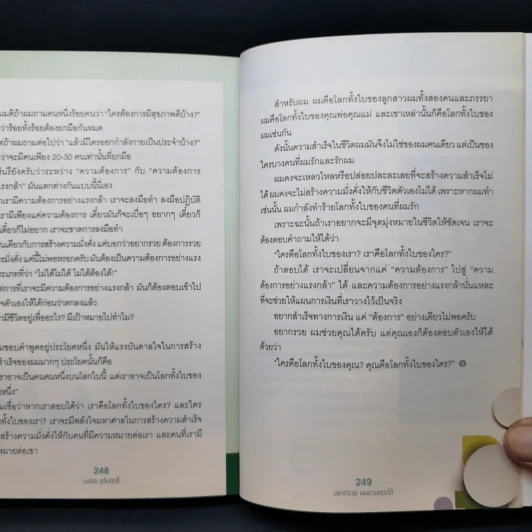 มมติถ้าผมถามคนหนึ่งร้อยคนว่า “ใครต้องการมีสุขภาพดีบ้าง?”
ว่าร้อยทั้งร้อยต้องยกมือกันหมด
ต่ถ้าผมถามต่อไปว่า “แล้วใครออกกำลังกายเป็นประจำบ้าง?”
ว่าจะมีคนเพียง 20-30 คนเท่านั้นที่ยกมือ
ห็นรึยังครับว่าระหว่าง “ความต้องการ” กับ “ความต้องการ
แรงกล้า” มันแตกต่างกันแบบนี้นี่เอง
เรามีความต้องการอย่างแรงกล้า เราจะลงมือทำ ลงมือปฏิบัติ
เรามีเพียงแค่ความต้องการ เดี๋ยวมันก็จะเบื่อๆ อยากๆ เดี๋ยวก็
ดี๋ยวก็ไม่อยาก เราจะขาดการลงมือทำ
นเดียวกับการสร้างความมั่งคั่ง แค่บอกว่าอยากรวย ต้องการรวย
รมั่งคั่ง แค่นี้ไม่พอหรอกครับ มันต้องเป็นความต้องการอย่างแรง
ระเภทที่ว่า “ไม่ได้ไม่ได้ ไม่ได้ต้องได้!”
ต่การที่เราจะมีความต้องการอย่างแรงกล้า มันก็ต้องตอบเข้า
จตัวเองให้ได้ก่อนว่าตกลงแล้ว
ามีชีวิตอยู่เพื่ออะไร? มีเป้าหมายไปทำไม?
มชอบคำพูดอยู่ประโยคหนึ่ง มันให้แรงบันดาลใจในการสร้าง
สำเร็จของผมมากๆ ประโยคนั้นก็คือ
ราอาจเป็นคนคนหนึ่งบนโลกใบนี้ แต่เราอาจเป็นโลกทั้งใบของ
หนึ่ง”
มเชื่อว่าหากเราตอบได้ว่า เราคือโลกทั้งใบของใคร? และใคร
ั้งใบของเรา? เราจะมีพลังใจมหาศาลในการสร้างความสำเร็จ
สร้างความมั่งคั่งให้กับคนที่มีความหมายต่อเรา และคนที่เรามี
หมายต่อเขา
248
มงคล ลุสัมฤทธิ์
สำหรับผม ผมคือโลกทั้งใบของลูกสาวผมทั้งสองคนและภรรยา
ผมคือโลกทั้งใบของคุณพ่อคุณแม่ และเขาเหล่านั้นก็คือโลกทั้งใบของ
ผมเช่นกัน
ดังนั้นความสำเร็จในชีวิตผมมันจึงไม่ใช่ของผมคนเดียว แต่เป็นของ
ใครบางคนที่ผมรักและรักผม
ผมคงจะเหลวไหลหรือปล่อยปละละเลยที่จะสร้างความสำเร็จไม่
ได้ ผมคงจะไม่สร้างความมั่งคั่งให้กับชีวิตตัวเองไม่ได้ เพราะหากผมทำ
เช่นนั้น ผมกำลังทำร้ายโลกทั้งใบของคนที่ผมรัก
เพราะฉะนั้นถ้าเราอยากจะมีจุดมุ่งหมายในชีวิตให้ชัดเจน เราจะ
ต้องตอบคำถามให้ได้ว่า
“ใครคือโลกทั้งใบของเรา? เราคือโลกทั้งใบของใคร?”
ถ้าตอบได้ เราจะเปลี่ยนจากแค่ “ความต้องการ” ไปสู่ “ความ
ต้องการอย่างแรงกล้า” ได้ และความต้องการอย่างแรงกล้านั่นแหละ
ที่จะช่วยให้แผนการเงินที่เราวางไว้เป็นจริง
อยากสำเร็จทางการเงิน แค่ “ต้องการ” อย่างเดียวไม่พอครับ
อยากรวย ผมช่วยคุณได้ครับ แต่คุณเองก็ต้องตอบตัวเองให้ได้
ด้วยว่า
“ใครคือโลกทั้งใบของคุณ? คุณคือโลกทั้งใบของใคร?”
249
อยากรวย ผมช่วยคุณได้